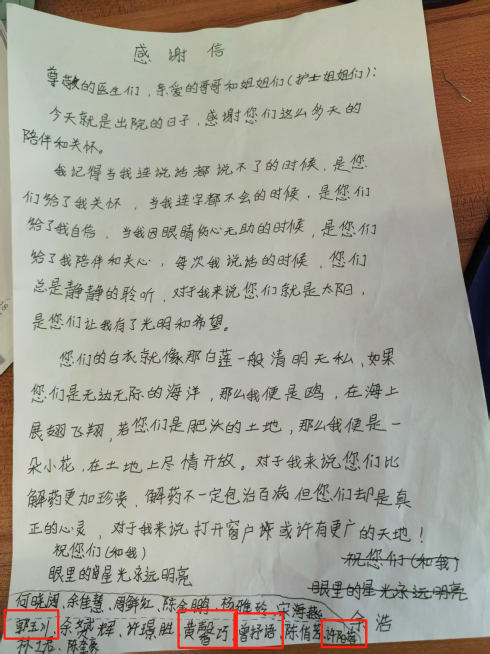 感谢信
尊敬的医生们，亲爱的哥哥和姐姐们(护士姐姐们)：
今天就是出院的日子，感谢您们这么多天的
陪伴和关怀。
我记得当我连说话都说不了的时候，是您
们给了我关怀，当我连字都不会的时候，是您们
给了我自信，当我因眼睛伤心无助的时候，是您们
给了我陪伴和关心，每次我说话的时候，您们
总是静静的聆听，对于我来说您们就是太阳，
是您们让我有了光明和希望。
您们的白衣就像那白莲一般清明无私，如果
您们是无边无际的海洋，那么我便是鸥，在海上
展翅飞翔，若您们是肥沃的土地，那么我便是一
朵小花，在土地上尽情开放。对于我来说您们比
解药更加珍贵，解药不一定包治百病但您们却是真
正的心灵，对于我来说打开窗户或许有更广的天地！
祝您们(和我) 祝您们(和我)
眼里的星光永远明亮 眼里的星光永远明亮
何晓阔、余佳慧、周鲜红、陈金鹏、杨雅玲、宋海燕 余浩
郭玉 余 辉、许璟胜、黄馨巧、曾抒语、陈俏 许
林 陈